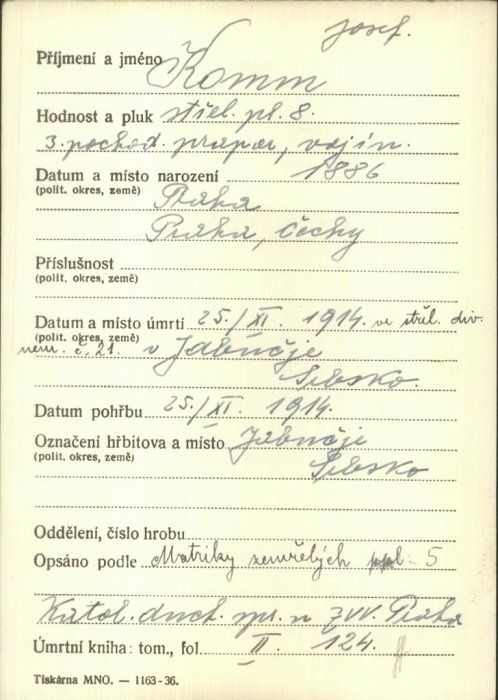 Josef.
Příjmení a jméno Komm
Hodnost a pluk střel. pl. 8.
3. pochod. prapor, vojín.
Datum a místo narození 1886
(polit. okres, země) Praha
Praha, Čechy
Příslušnost
(polit. okres, země)
Datum a místo úmrtí 25./XI. 1914. ve střel. div.
(polit. okres, země)
nem. č. 21. v Jabučje
Srbsko.
Datum pohřbu 25./XI. 1914.
Označení hřbitova a místo Jabučje
(polit. okres, země) Srbsko
Oddělení, číslo hrobu
Opsáno podle Matriky zemřelých ppl. 5
Katol. duch. spr. u ZVV. Praha
Úmrtní kniha: tom., fol. II. 124.
Tiskárna MNO. — 1163-36.